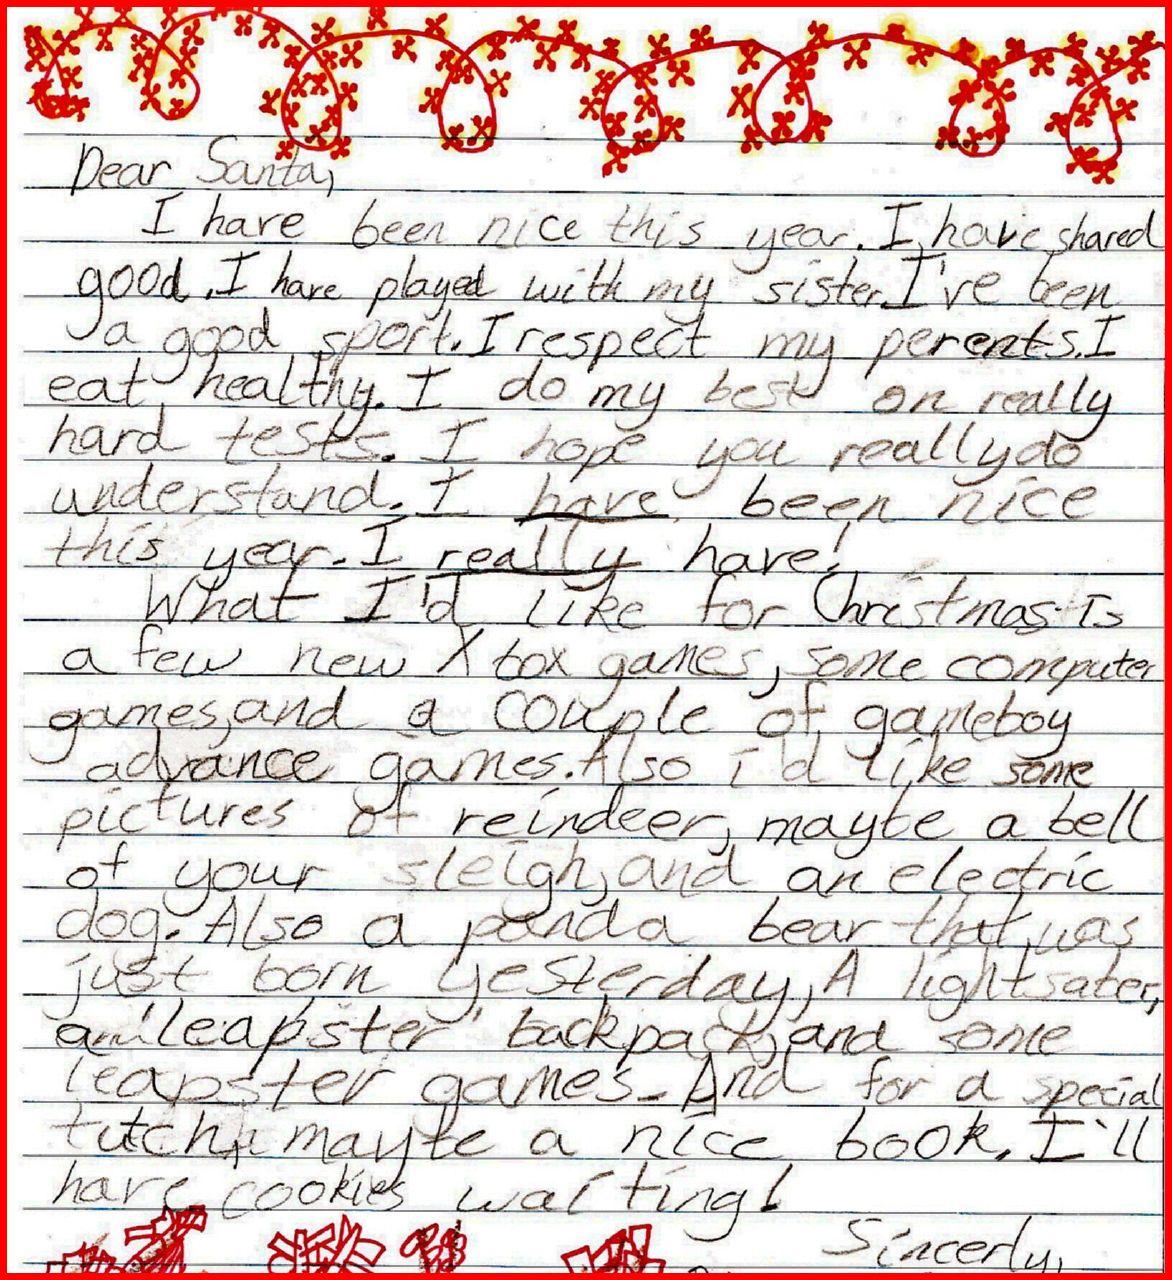 Dear Santa,
I have been nice this year. I have shared
good. I have played with my sister. I've been
a good sport. I respect my perents. I
eat healthy. I do my best on really
hard tests. I hope you really do
understand. I have been nice
this year. I really have!
What I'd like for Christmas is
a few new Xbox games, some computer
games, and a couple of gameboy
advance games. Also i'd like some
pictures of reindeer, maybe a bell
of your sleigh, and an electric
dog. Also a panda bear that was
just born yesterday, A lightsater,
an 'leapster' backpack, and some
leapster games. And for a special
tutch, mayte a nice book. I'll
have cookies waiting!
Sincerly,